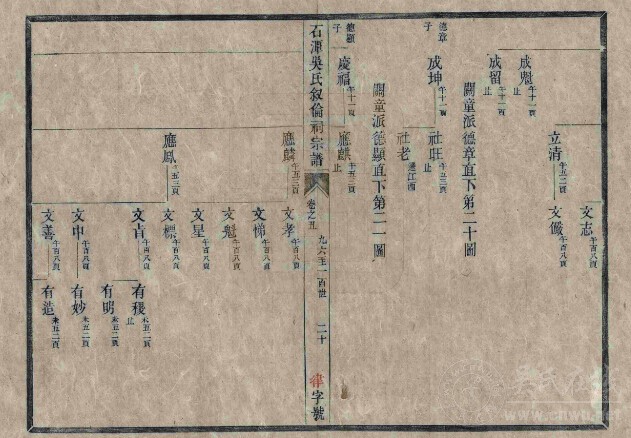 成魁 午十一頁
止
成留 午十一頁
止
立清 午五三頁
文志 午百八頁
文儆 午百八頁
關童派德章直下第二十圖
德章
子
成坤 午十一頁
社旺 午五三頁
止
社老 遷江西
關童派德顯直下第二一圖
德顯
子
慶福 午十一頁
應麒 午五三頁
止
石潭吳氏叙倫祠宗譜
卷之五
九六至一百世
二十
字號
應麟 午五三頁
文孝 午百八頁
文悌 午百八頁
文魁 午百八頁
文星 午百八頁
應鳳 午五三頁
文標 午百八頁
文肯 午百八頁
有稷 未五二頁
止
有明 未五二頁
文中 午百八頁
有妙 未五二頁
文善 午百八頁
有造 未五二頁
吳氏
www.cnwu.net